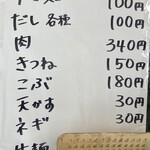 100円
だし 各種 100円
肉 340円
きつね 150円
こぶ 180円
天かす 30円
ネギ 30円